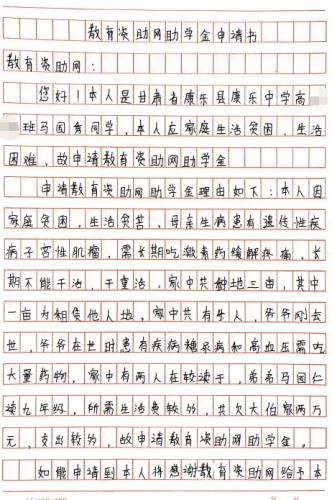 教育资助网助学金申请书
教育资助网：
您好！本人是甘肃省康乐县康乐中学高
班马国有同学，本人应家庭生活贫困，生活
困难、故申请教育资助网助学金
申请教育资助网助学金理由如下：本人因
家庭贫困，生活贫苦、母亲生病患有遗传性疾
病子宫性肌瘤，需长期吃激素药缓解疼痛，长
期不能干活，干重活，家中共种地三亩，其中
一亩为租赁他人地，家中共有牛人，爷爷刚去
世，爷爷在世时患有疾病糖尿病和高血压需吃
大量药物，家中有两人在较读于，弟弟马国仁
读九年级，所需生活费较多，共欠大伯家两万
元，支出较多，故申请教育资助网助学金。
如能申请到本人将感谢教育资助网给予本